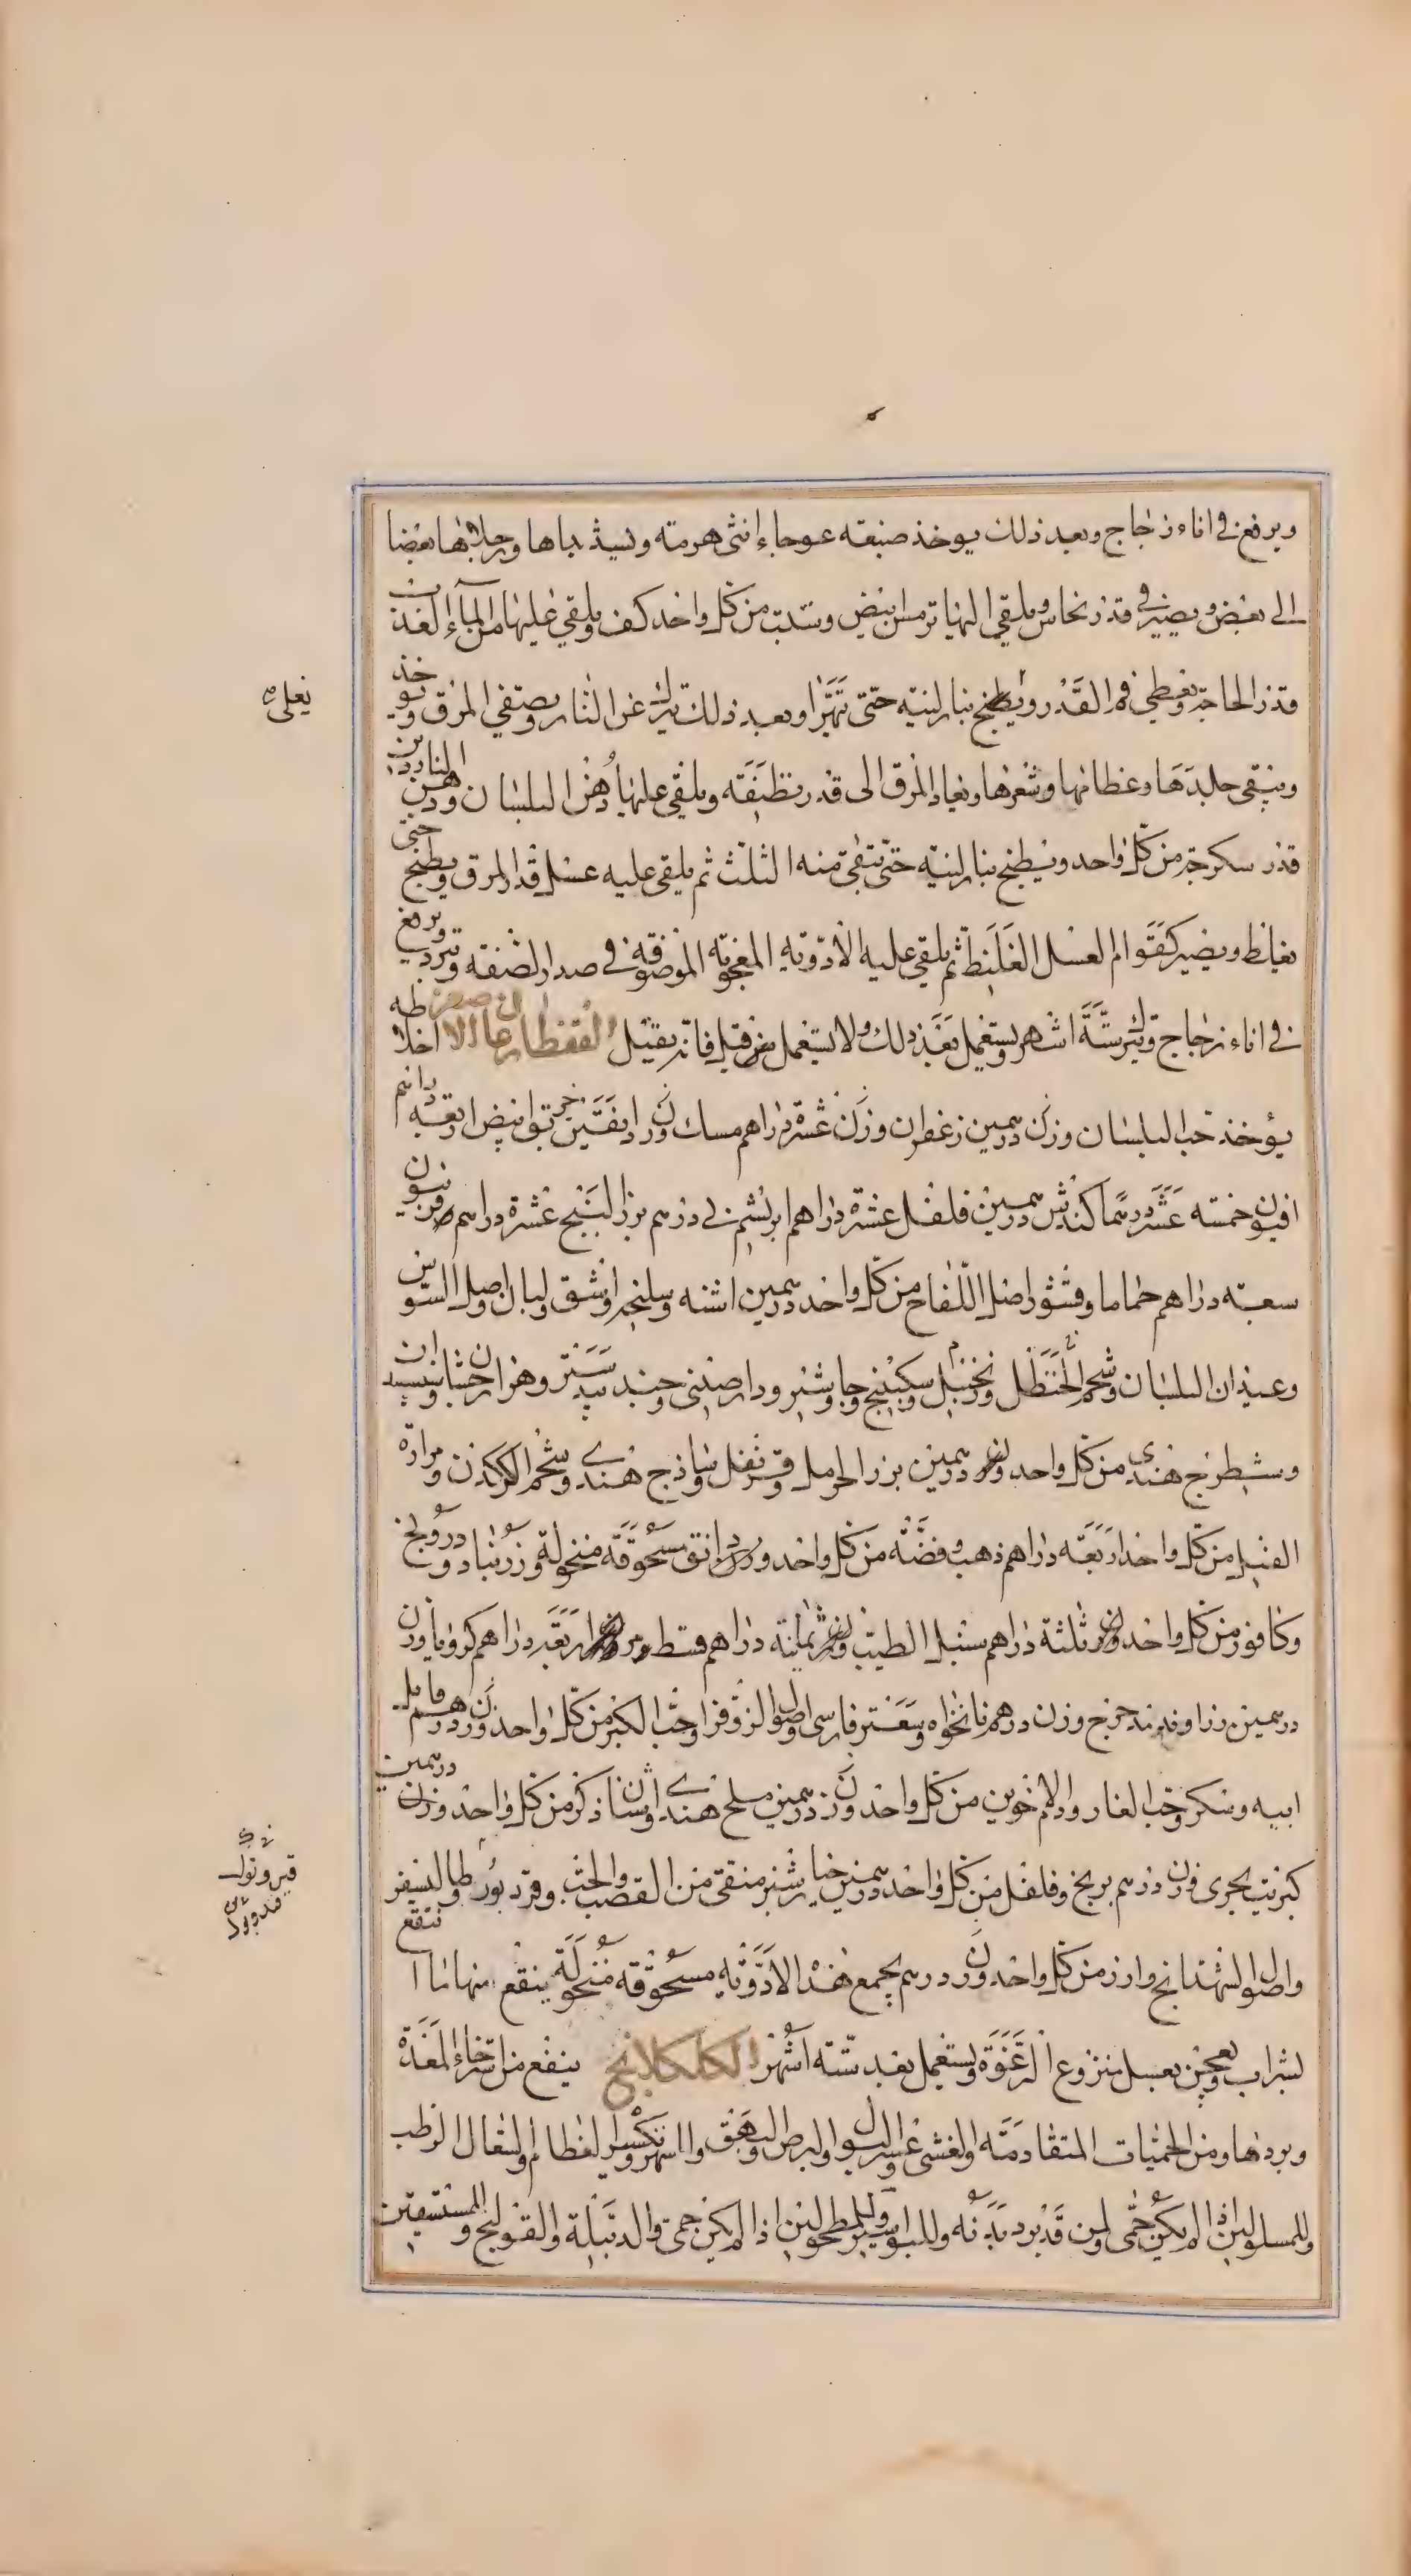 ويرفع في اناء زجاج وبعد ذلك يوخذ ضبعه عوجاء انثى هرمة ويشد يداها ورجلاها بعضا
الى بعض ويصير في قدر نحاس ويلقي اليها ترمس ابيض وشبت من كل واحد كف ويلقي عليها من الماء العذب
قدر الحاجة ويغطي فم القدر ويطبخ بنار لينة حتى تهرا وبعد ذلك تترك عن النار ويصفي المرق ويوخذ
وينقي جلدها وعظامها وشعرها ويعاد المرق الى قدر نظيفة ويلقي عليها دهن البلسان ودهن الناردين
قدر سكرجة من كل واحد ويطبخ بنار لينة حتى يبقى منه الثلث ثم يلقى عليه عسل قدر المرق ويطبخ حتى
يغلظ ويصير كقوام العسل الغليظ ثم يلقى عليه الادوية المعجونة الموصوفة في صدر الصفة ويبرد ويرفع
في اناء زجاج ويترك ستة اشهر ويستعمل بعد ذلك ولا يستعمل من قبل فانه يقتل القفطارغان الاصغر اخلاطه
يؤخذ حب البلسان وزن درهمين زعفران وزن عشرة دراهم مسك وزن دانقين خربق ابيض اربعة دراهم
افيون خمسة عشر درهما كندش درهمين فلفل عشرة دراهم ابريشم ني درهم بزر البنج عشرة دراهم فربيون
سبعة دراهم حماما وقشور اصل اللفاح من كل واحد درهمين اشنه وسليخه واشق ولبان واصل السوسن
وعيدان البلسان وشحم الحنظل وزنجبيل وسكبينج وجاوشير ودارصيني وجند بيدستر وهزارجشان وسپيد
وشيطرج هندي من كل واحد وزن درهمين بزر الحرمل وقرنفل وساذج هندي وشحم الكركدن ومرارة
الفيل من كل واحد اربعة دراهم ذهب وفضة من كل واحد وزن دانق مسحوقة منخولة وزرنباد ودرونج
وكافور من كل واحد وزن ثلثة دراهم سنبل الطيب وزن ثمانية دراهم قسط ومر وزن اربعة دراهم كرويا وزن
درهمين زراوند مدحرج وزن درهم نانخواه وسعتر فارسي واصول الزوفرا وحب الكبر من كل واحد وزن درهم
ابيه وسكر وحب الغار ودم الاخوين من كل واحد وزن درهمين ملح هندي واشنان ذكر من كل واحد وزن درهمين
كبريت بحري وزن درهم برنج وفلفل من كل واحد درهمين خيارشنبر منقى من القصب والحب وقرد
واصول الشهدانج وارز من كل واحد وزن درهم يجمع هذه الادوية مسحوقة منخولة ينقع منها ما ينقع
لشراب ويعجن بعسل منزوع الرغوة ويستعمل بعد ستة اشهر الكلكلانج ينفع من استرخاء المعدة
وبردها ومن الحميات المتقادمة والغشي وعسر البول والبرص والبهق والسهر وتكسير العظام والسعال الرطب
وللمسلولين اذا لم يكن حمى ولمن قد برد بدنه وللبواسير وللمطحولين اذا لم يكن حمى والدبيلة والقولنج والمستسقين
يغلى